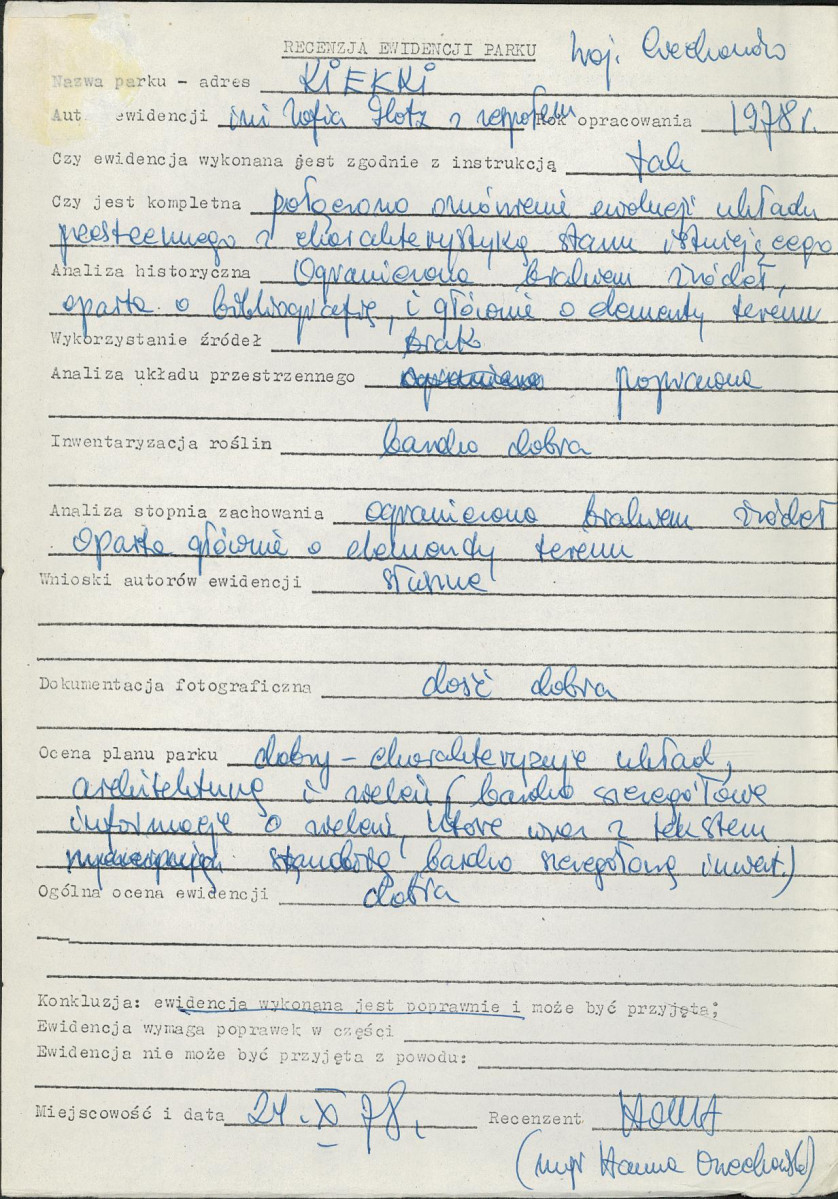 RECENZJA EWIDENCJI PARKU woj. Ciechanów
Nazwa parku - adres KIEKKI
Aut. ewidencji inż Zofia z zespołem Rok opracowania 1978 r.
Czy ewidencja wykonana jest zgodnie z instrukcją tak
Czy jest kompletna połączono omówienie ewolucji układu
przestrzennego z charakterystyką stanu istniejącego
Analiza historyczna Ograniczona brakiem źródeł,
oparta o bibliografię, i głównie o elementy terenu
Wykorzystanie źródeł brak
Analiza układu przestrzennego poprawna
Inwentaryzacja roślin bardzo dobra
Analiza stopnia zachowania ograniczona brakiem źródeł
oparta głównie o elementy terenu
Wnioski autorów ewidencji słuszne
Dokumentacja fotograficzna dość dobra
Ocena planu parku dobry - charakteryzuje układ,
architekturę i zieleń (bardzo szczegółowe
informacje o zieleni, które wraz z tekstem
stanowią bardzo szczegółową inwent.)
Ogólna ocena ewidencji dobra
Konkluzja: ewidencja wykonana jest poprawnie i może być przyjęta;
Ewidencja wymaga poprawek w części
Ewidencja nie może być przyjęta z powodu:
Miejscowość i data 24.XI.78. Recenzent
(mgr Hanna Orzechowska)